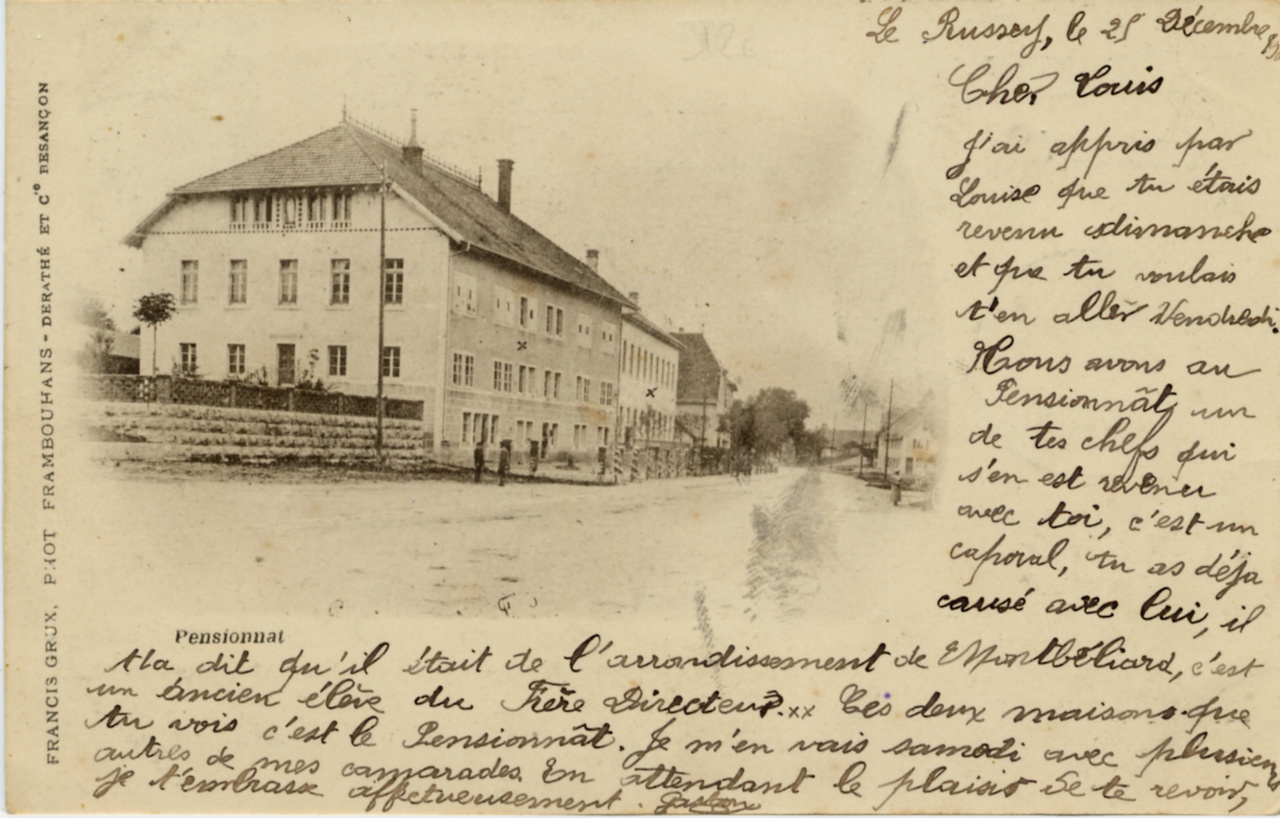 Le Russey, le 25 Décembre
Cher Louis
J'ai appris par
Louise que tu étais
revenu dimanche
et que tu voulais
t'en aller Vendredi,
Nous avons au
Pensionnât, un
de tes chefs qui
s'en est revenu
avec toi, c'est un
caporal, tu as déja
causé avec lui, il
t'a dit qu'il était de l'arrondissement de Montbéliard, c'est
un ancien élève du Frère Directeur. xx Ces deux maisons que
tu vois c'est le Pensionnât. Je m'en vais samedi avec plusieurs
autres de mes camarades. En attendant le plaisir de te revoir,
je t'embrasse affectueusement. Gaston
Pensionnat
FRANCIS GRUX, PHOT FRAMBOUHANS - DERATHÉ ET Cie BESANÇON